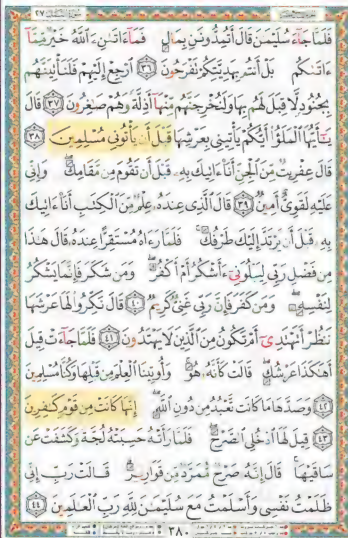 سورة النمل ٢٧
فَلَمَّا جَآءَ سُلَيْمَٰنَ قَالَ أَتُمِدُّونَنِ بِمَالٍ فَمَآ ءَاتَىٰنِۦَ ٱللَّهُ خَيْرٌ مِّمَّآ
ءَاتَىٰكُم بَلْ أَنتُم بِهَدِيَّتِكُمْ تَفْرَحُونَ ٣٦ ٱرْجِعْ إِلَيْهِمْ فَلَنَأْتِيَنَّهُم
بِجُنُودٍ لَّا قِبَلَ لَهُم بِهَا وَلَنُخْرِجَنَّهُم مِّنْهَآ أَذِلَّةً وَهُمْ صَٰغِرُونَ ٣٧ قَالَ
يَٰٓأَيُّهَا ٱلْمَلَؤُا۟ أَيُّكُمْ يَأْتِينِى بِعَرْشِهَا قَبْلَ أَن يَأْتُونِى مُسْلِمِينَ ٣٨
قَالَ عِفْرِيتٌ مِّنَ ٱلْجِنِّ أَنَا۠ ءَاتِيكَ بِهِۦ قَبْلَ أَن تَقُومَ مِن مَّقَامِكَ ۖ وَإِنِّى
عَلَيْهِ لَقَوِىٌّ أَمِينٌ ٣٩ قَالَ ٱلَّذِى عِندَهُۥ عِلْمٌ مِّنَ ٱلْكِتَٰبِ أَنَا۠ ءَاتِيكَ
بِهِۦ قَبْلَ أَن يَرْتَدَّ إِلَيْكَ طَرْفُكَ ۚ فَلَمَّا رَءَاهُ مُسْتَقِرًّا عِندَهُۥ قَالَ هَٰذَا
مِن فَضْلِ رَبِّى لِيَبْلُوَنِىٓ ءَأَشْكُرُ أَمْ أَكْفُرُ ۖ وَمَن شَكَرَ فَإِنَّمَا يَشْكُرُ
لِنَفْسِهِۦ ۖ وَمَن كَفَرَ فَإِنَّ رَبِّى غَنِىٌّ كَرِيمٌ ٤٠ قَالَ نَكِّرُوا۟ لَهَا عَرْشَهَا
نَنظُرْ أَتَهْتَدِىٓ أَمْ تَكُونُ مِنَ ٱلَّذِينَ لَا يَهْتَدُونَ ٤١ فَلَمَّا جَآءَتْ قِيلَ
أَهَٰكَذَا عَرْشُكِ ۖ قَالَتْ كَأَنَّهُۥ هُوَ ۚ وَأُوتِينَا ٱلْعِلْمَ مِن قَبْلِهَا وَكُنَّا مُسْلِمِينَ
٤٢ وَصَدَّهَا مَا كَانَت تَّعْبُدُ مِن دُونِ ٱللَّهِ ۖ إِنَّهَا كَانَتْ مِن قَوْمٍ كَٰفِرِينَ
٤٣ قِيلَ لَهَا ٱدْخُلِى ٱلصَّرْحَ ۖ فَلَمَّا رَأَتْهُ حَسِبَتْهُ لُجَّةً وَكَشَفَتْ عَن
سَاقَيْهَا ۚ قَالَ إِنَّهُۥ صَرْحٌ مُّمَرَّدٌ مِّن قَوَارِيرَ ۗ قَالَتْ رَبِّ إِنِّى
ظَلَمْتُ نَفْسِى وَأَسْلَمْتُ مَعَ سُلَيْمَٰنَ لِلَّهِ رَبِّ ٱلْعَٰلَمِينَ ٤٤
٣٨٠